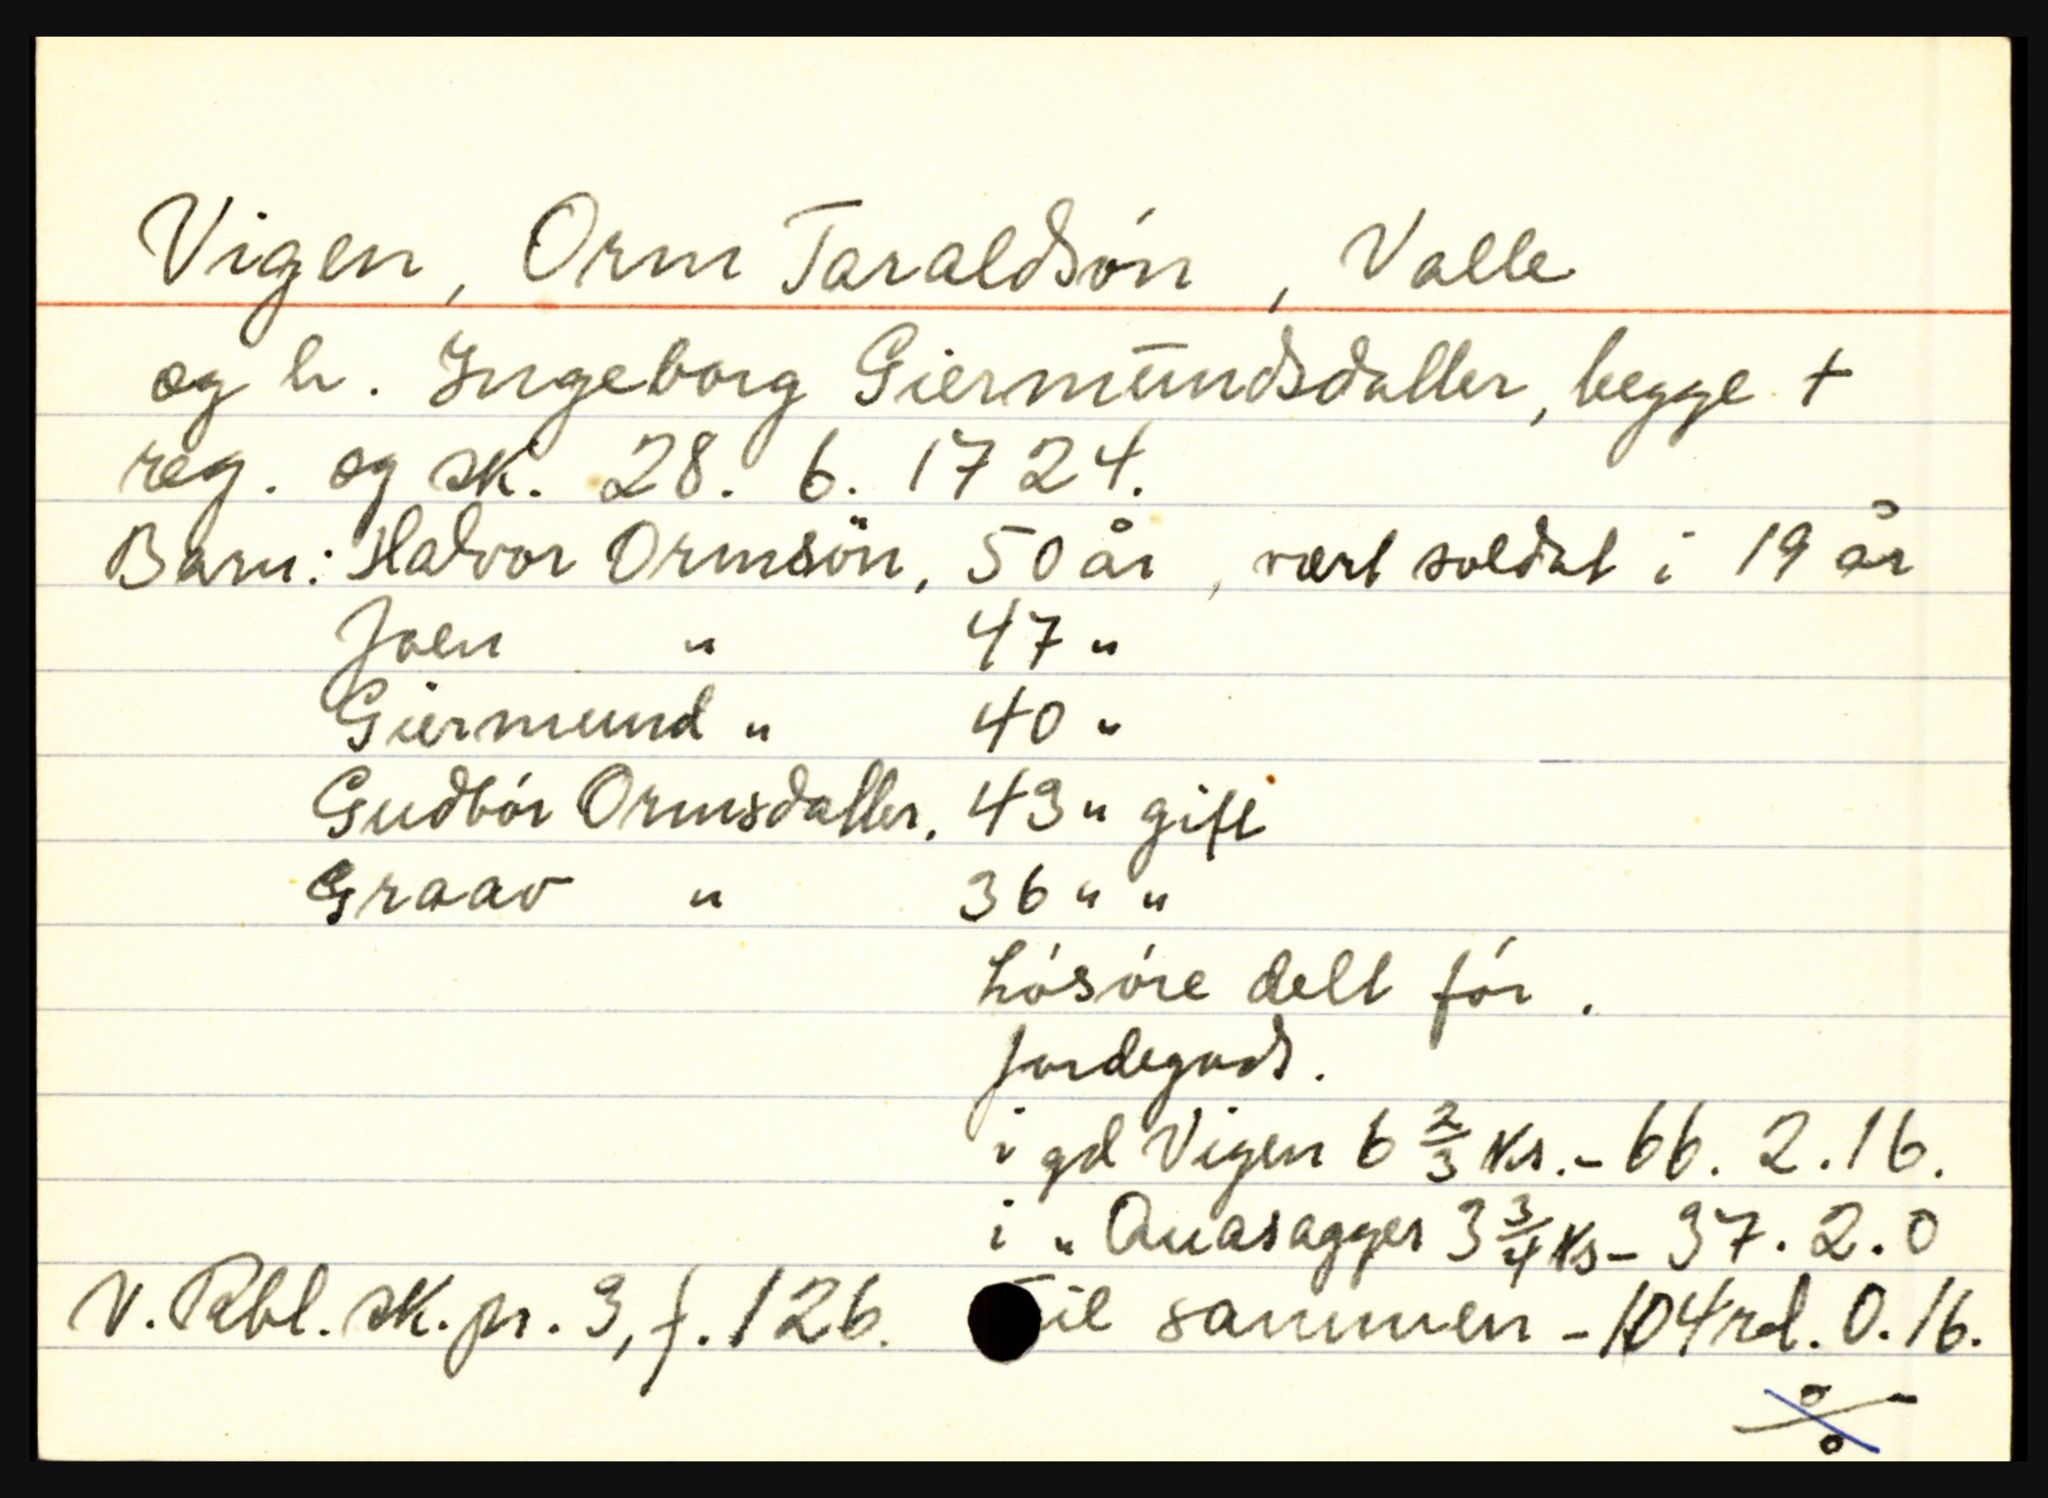 Vigen, Orm Taraldsón, Valle
og h. Ingeborg Giermūndsdatter, begge +
reg. og sk. 28. 6. 1724.
Barn: Halvor Ormsön, 50 år, vært soldat i 19 år
Joen " 47 "
Giermund " 40 "
Gudbór Ormsdatter. 43 " gift
Graav " 36 " "
Lósóre delt fór.
Jordegods.
i gd Vigen 6 2/3 Ks. - 66. 2. 16.
i " Quasagger 3 3/4 Ks - 37. 2. 0
V. Rbl. sk. pr. 3, f. 126. Til sammen - 104 rd. 0. 16.